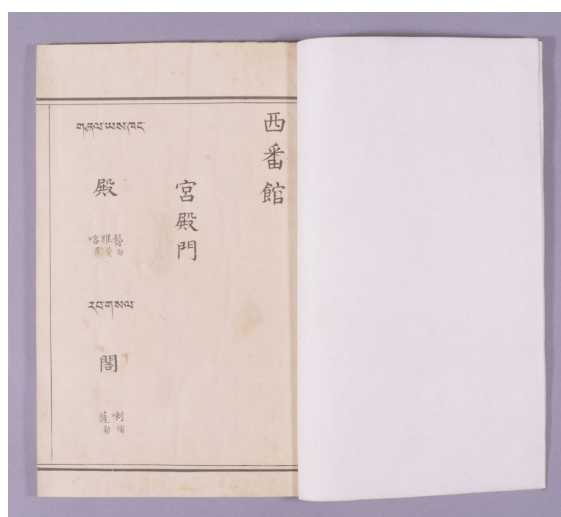 西番館
宮殿門
གཞལ་ཡས་ཁང
殿
雅
喀
རབ་གསལ
閣
喇
薩勒